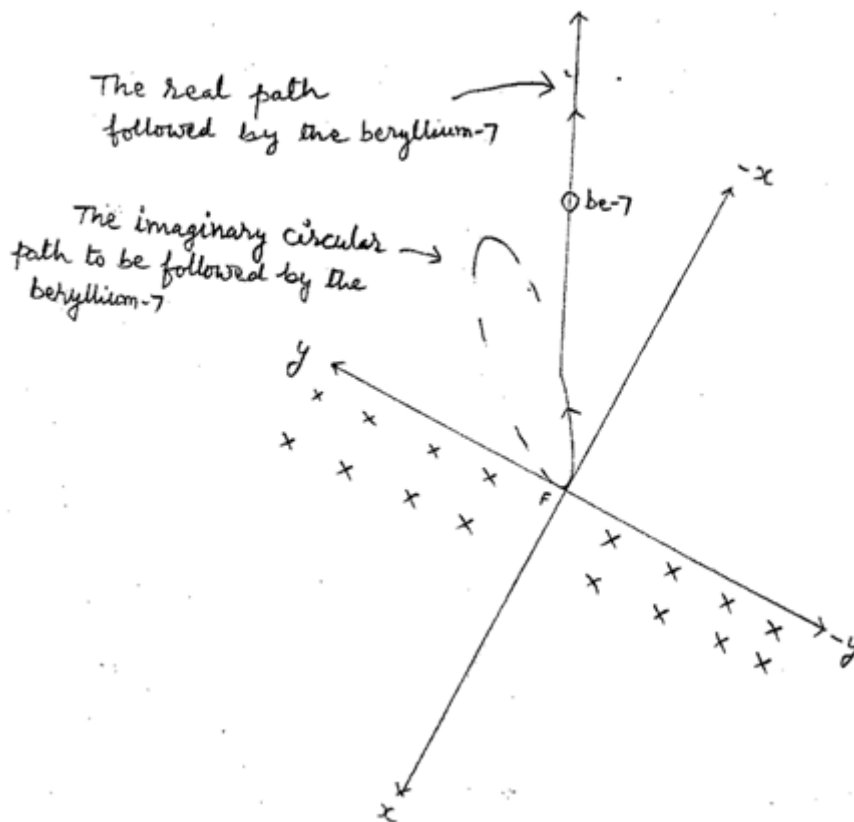 The real path
followed by the beryllium-7
-x
be-7
The imaginary circular
path to be followed by the
beryllium-7
y
F
-y
x